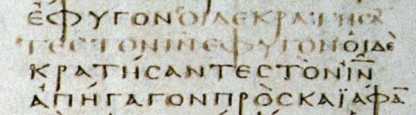 ἐφυγονοιδεκρατηϲα̅
τεϲτονι̅ν̅εφυγονοἱδὲ
κρατήϲαντεϲτὸνι̅ν̅
ἀπήγαγονπρὸϲκαϊάφα̅